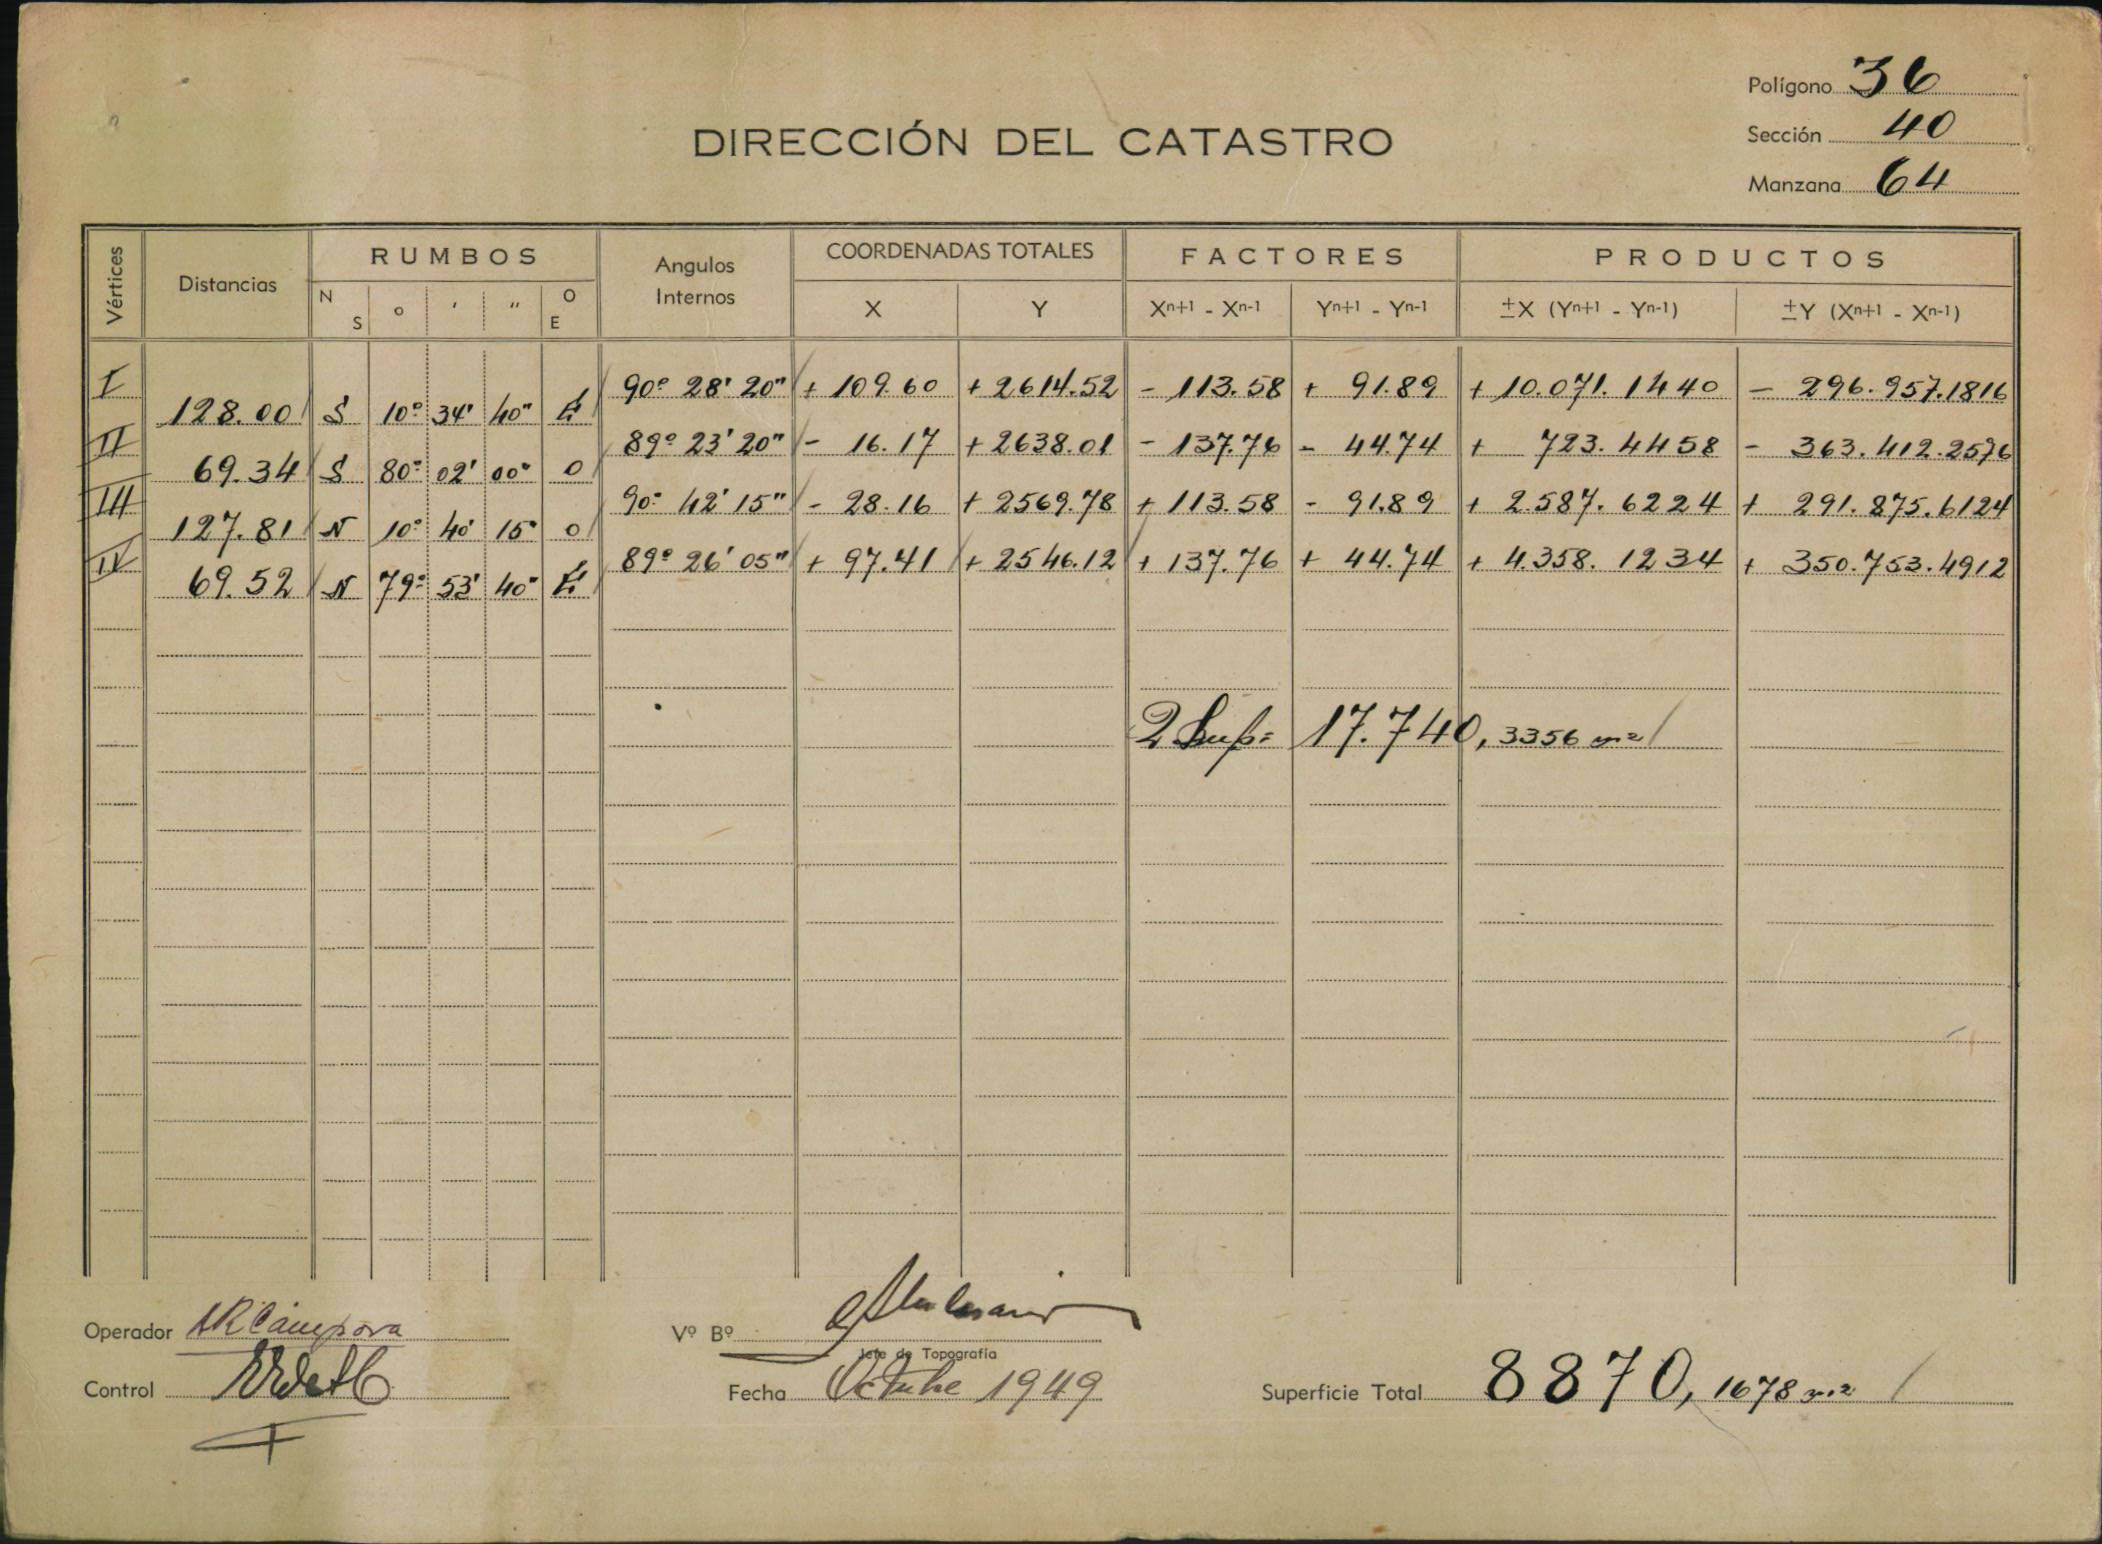 Polígono 36
DIRECCIÓN DEL CATASTRO
Sección 40
Manzana 64
Vértices Distancias RUMBOS Angulos Internos COORDENADAS TOTALES FACTORES PRODUCTOS
N S o ' " O E X Y Xn+1 - Xn-1 Yn+1 - Yn-1 ±X (Yn+1 - Yn-1) ±Y (Xn+1 - Xn-1)
I 90º 28' 20" + 109.60 + 2614.52 - 113.58 + 91.89 + 10.071.1440 - 296.957.1816
128.00 S 10º 34' 40" E
II 89º 23' 20" - 16.17 + 2638.01 - 137.76 - 44.74 + 723.4458 - 363.412.2576
69.34 S 80º 02' 00" O
III 90º 42' 15" - 28.16 + 2569.78 + 113.58 - 91.89 + 2.587.6224 + 291.875.6124
127.81 N 10º 40' 15" O
IV 89º 26' 05" + 97.41 + 2546.12 + 137.76 + 44.74 + 4.358.1234 + 350.753.4912
69.52 N 79º 53' 40" E
2 Sup= 17.740,3356 m2
Operador ARCámpora
Vº Bº
Jefe de Topografía
Control
Fecha Octubre 1949
Superficie Total 8870,1678 m2